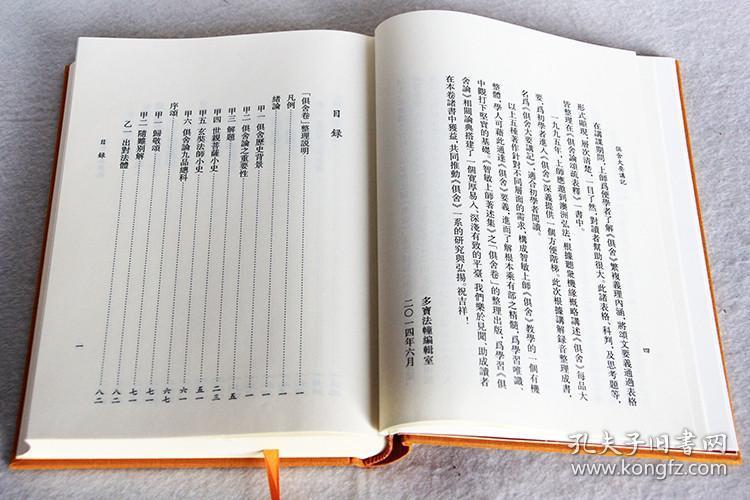 俱舍大要講記
在講課期間，上師爲便學者了解《俱舍》繁複義理內涵，將頌文要義通過表格
形式顯現，層次清楚，一目了然，對讀者幫助很大。此諸表格、科判，及思考題等，
皆整理在《俱舍論頌疏表釋》一書中。
一九九五年，上師應邀到澳洲弘法，根據聽衆機緣概略講述《俱舍》每品大
要，爲初學者進入《俱舍》深義提供一個方便階梯。此次根據講解錄音整理成書，
名爲《俱舍大要講記》，適合初學者閱讀。
以上五種著作針對不同層面的需求，構成智敏上師《俱舍》教學的一個有機
整體，學人可藉此通達《俱舍》要義，進而了解根本乘有部之精髓，爲學習唯識、
中觀打下堅實的基礎。《智敏上師著述集》之「俱舍卷」的整理出版，爲學習《俱
舍論》相關論典搭建了一個寬厚易入、深淺有致的平臺。我們樂於見聞、助成讀者
在本卷諸書中獲益，共同推動《俱舍》一系的研究與弘揚。祝吉祥！
多寶法幢編輯室
二〇一四年六月
四
目録
「俱舍卷」整理説明 一
凡例 一
緒論 一
甲一 俱舍歷史背景 一
甲二 俱舍論之重要性 五
甲三 解題 二三
甲四 世親菩薩小史 五一
甲五 玄奘法師小史 六一
甲六 俱舍論九品總科 六七
序頌 七一
甲一 歸敬頌 七一
甲二 隨難別解 八二
乙一 出對法體 八二
目録
一
孔夫子旧书网
www.kongfz.com